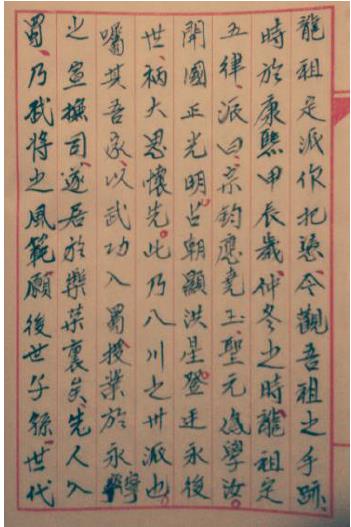 龍祖定派作把憑今觀吾祖之手跡
時於康熙甲辰歲仲冬之時龍祖定
五律派曰宗鈞應堯玉聖元鴻學汝
開國正光明占朝顯洪星登廷永後
世裪大恩懷先。此乃入川之卅派也。
囑其吾家以武功入蜀授業於永寧
之宣撫司遂居於樂榮裏矣先人入
蜀乃武將之風範願後世子孫世代